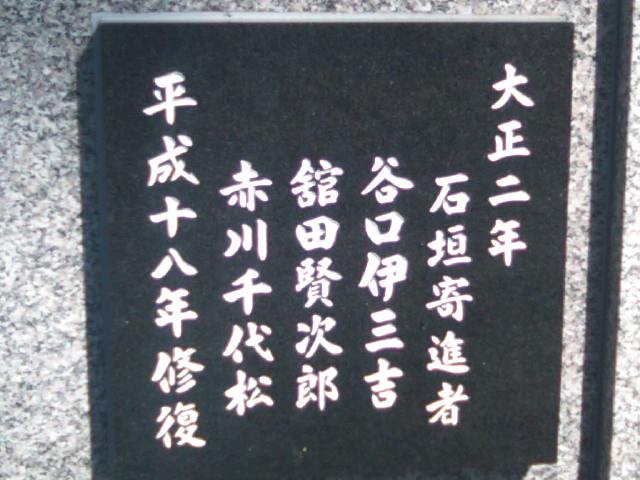 大正二年
石垣寄進者
谷口伊三吉
舘田賢次郎
赤川千代松
平成十八年修復